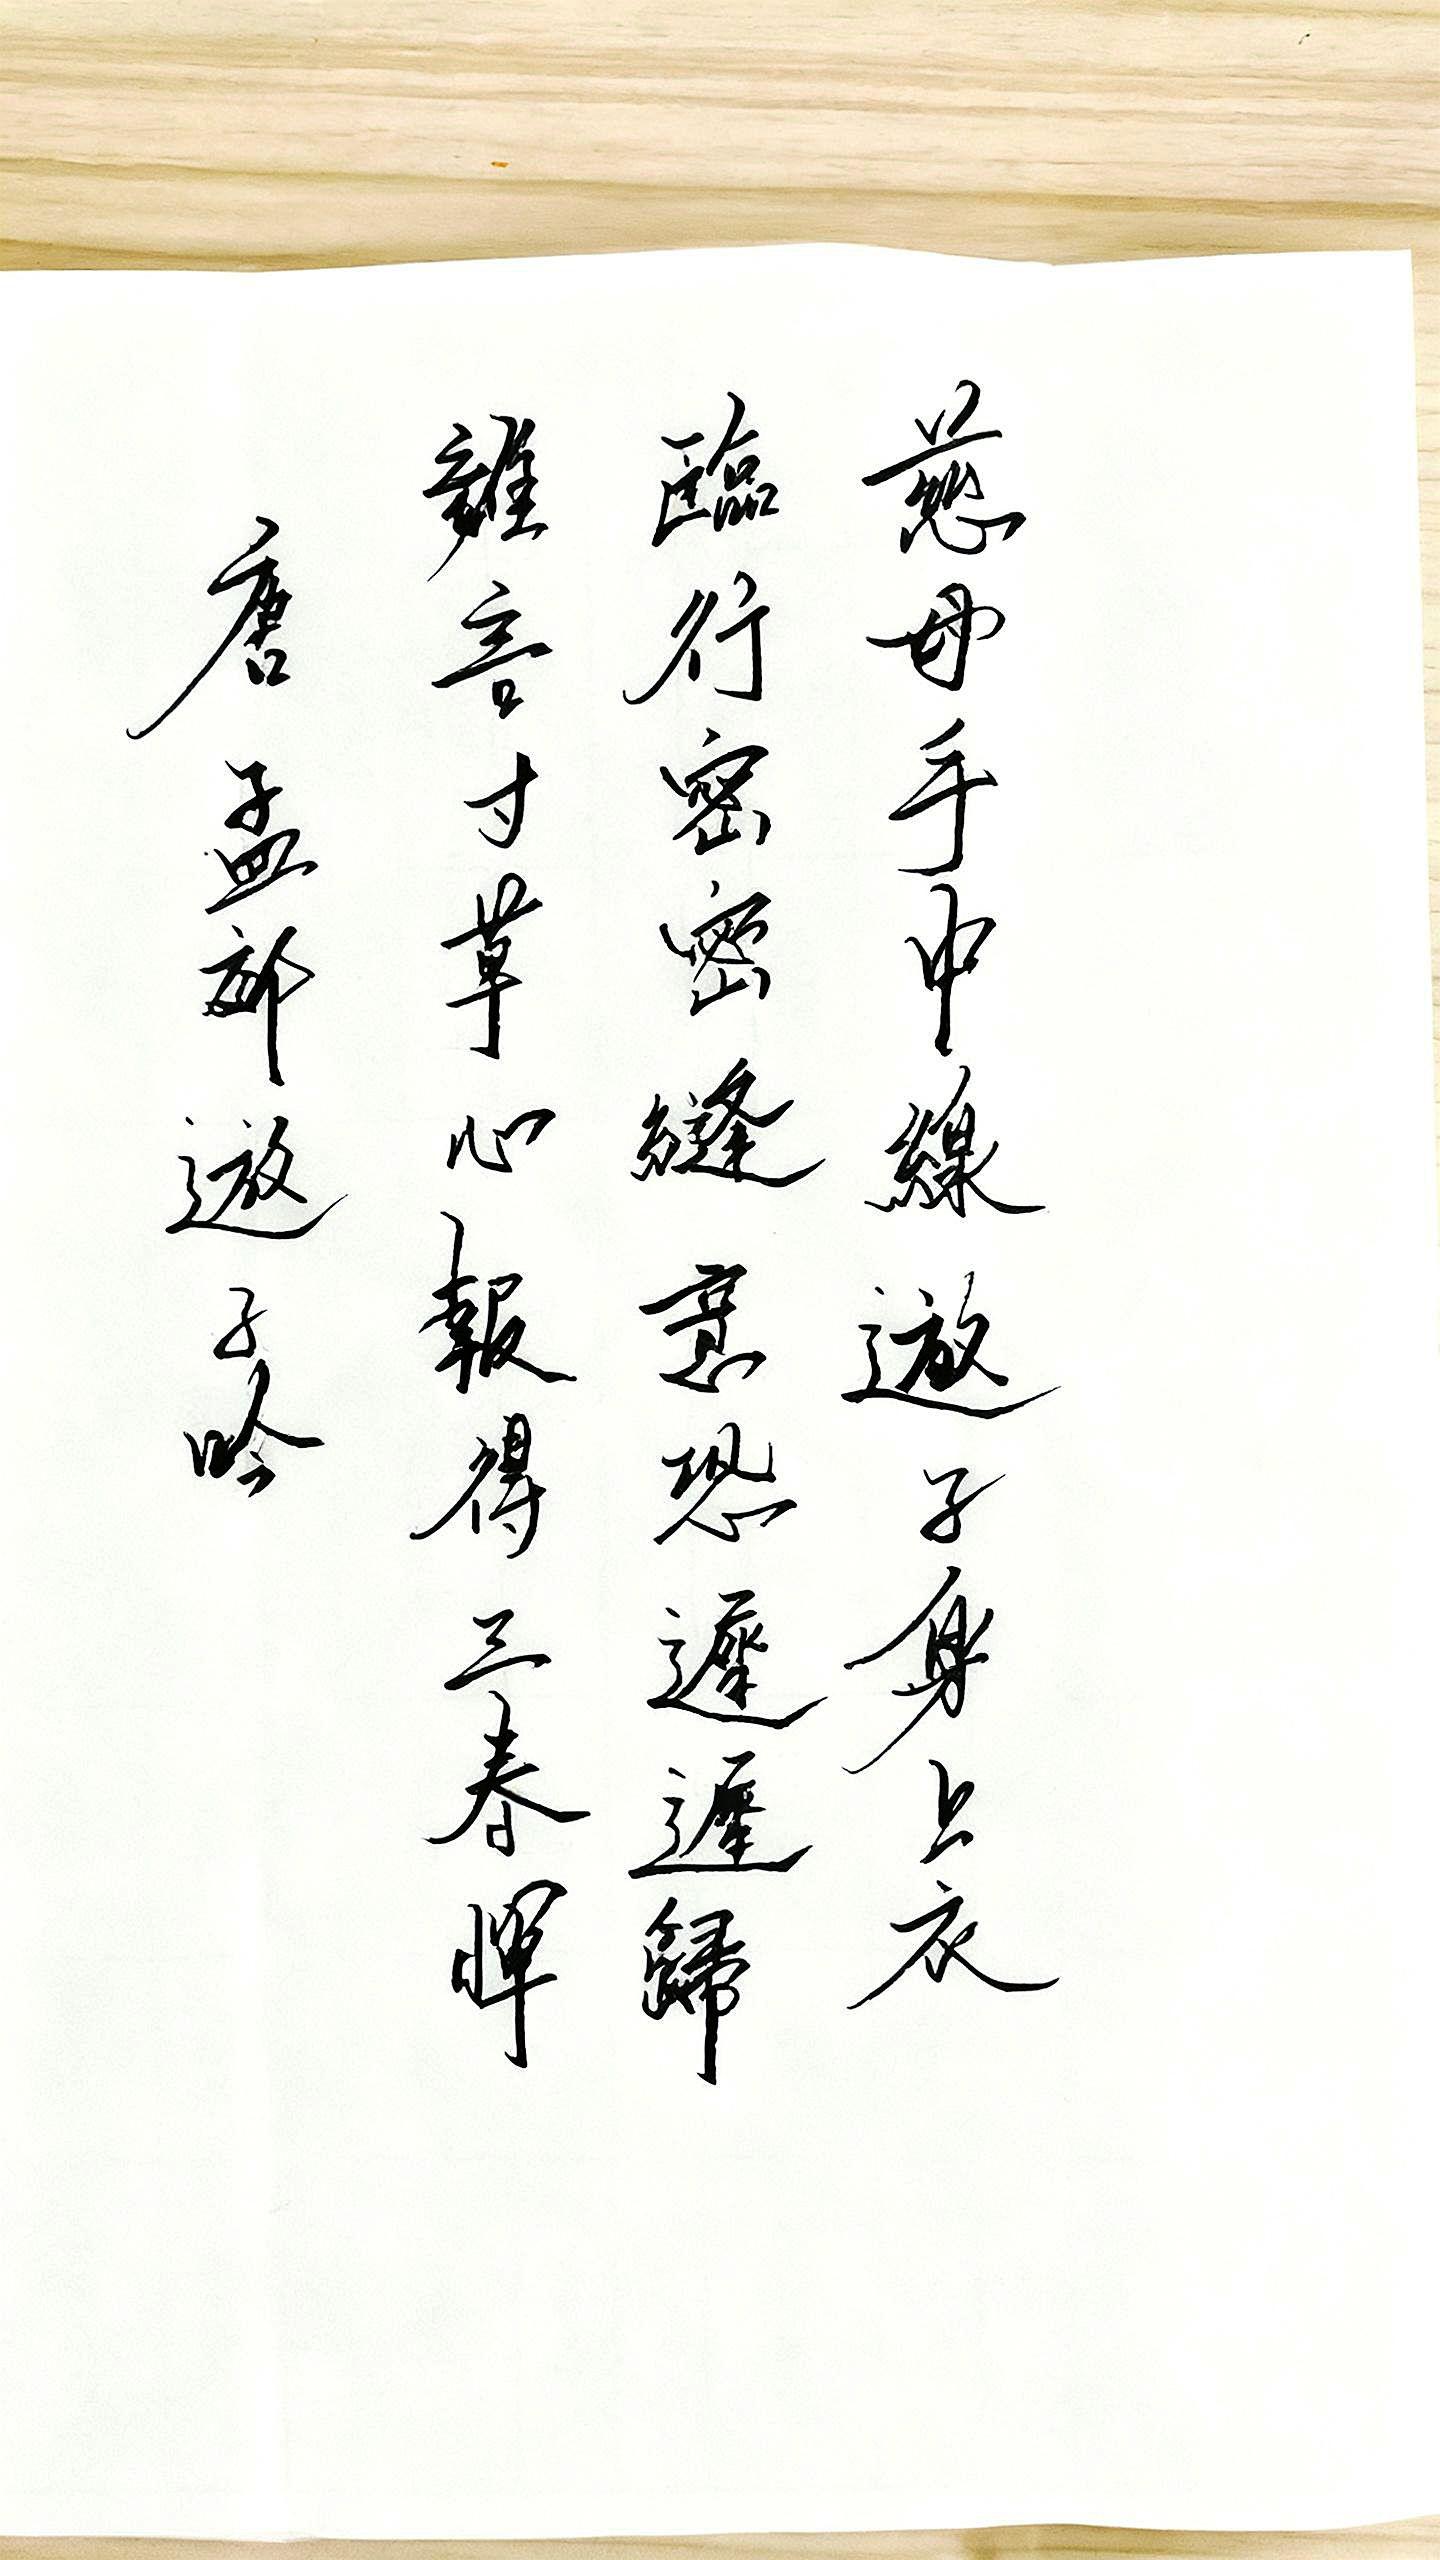 慈母手中線遊子身上衣
臨行密密縫意恐遲遲歸
難言寸草心報得三春暉
唐孟郊遊子吟